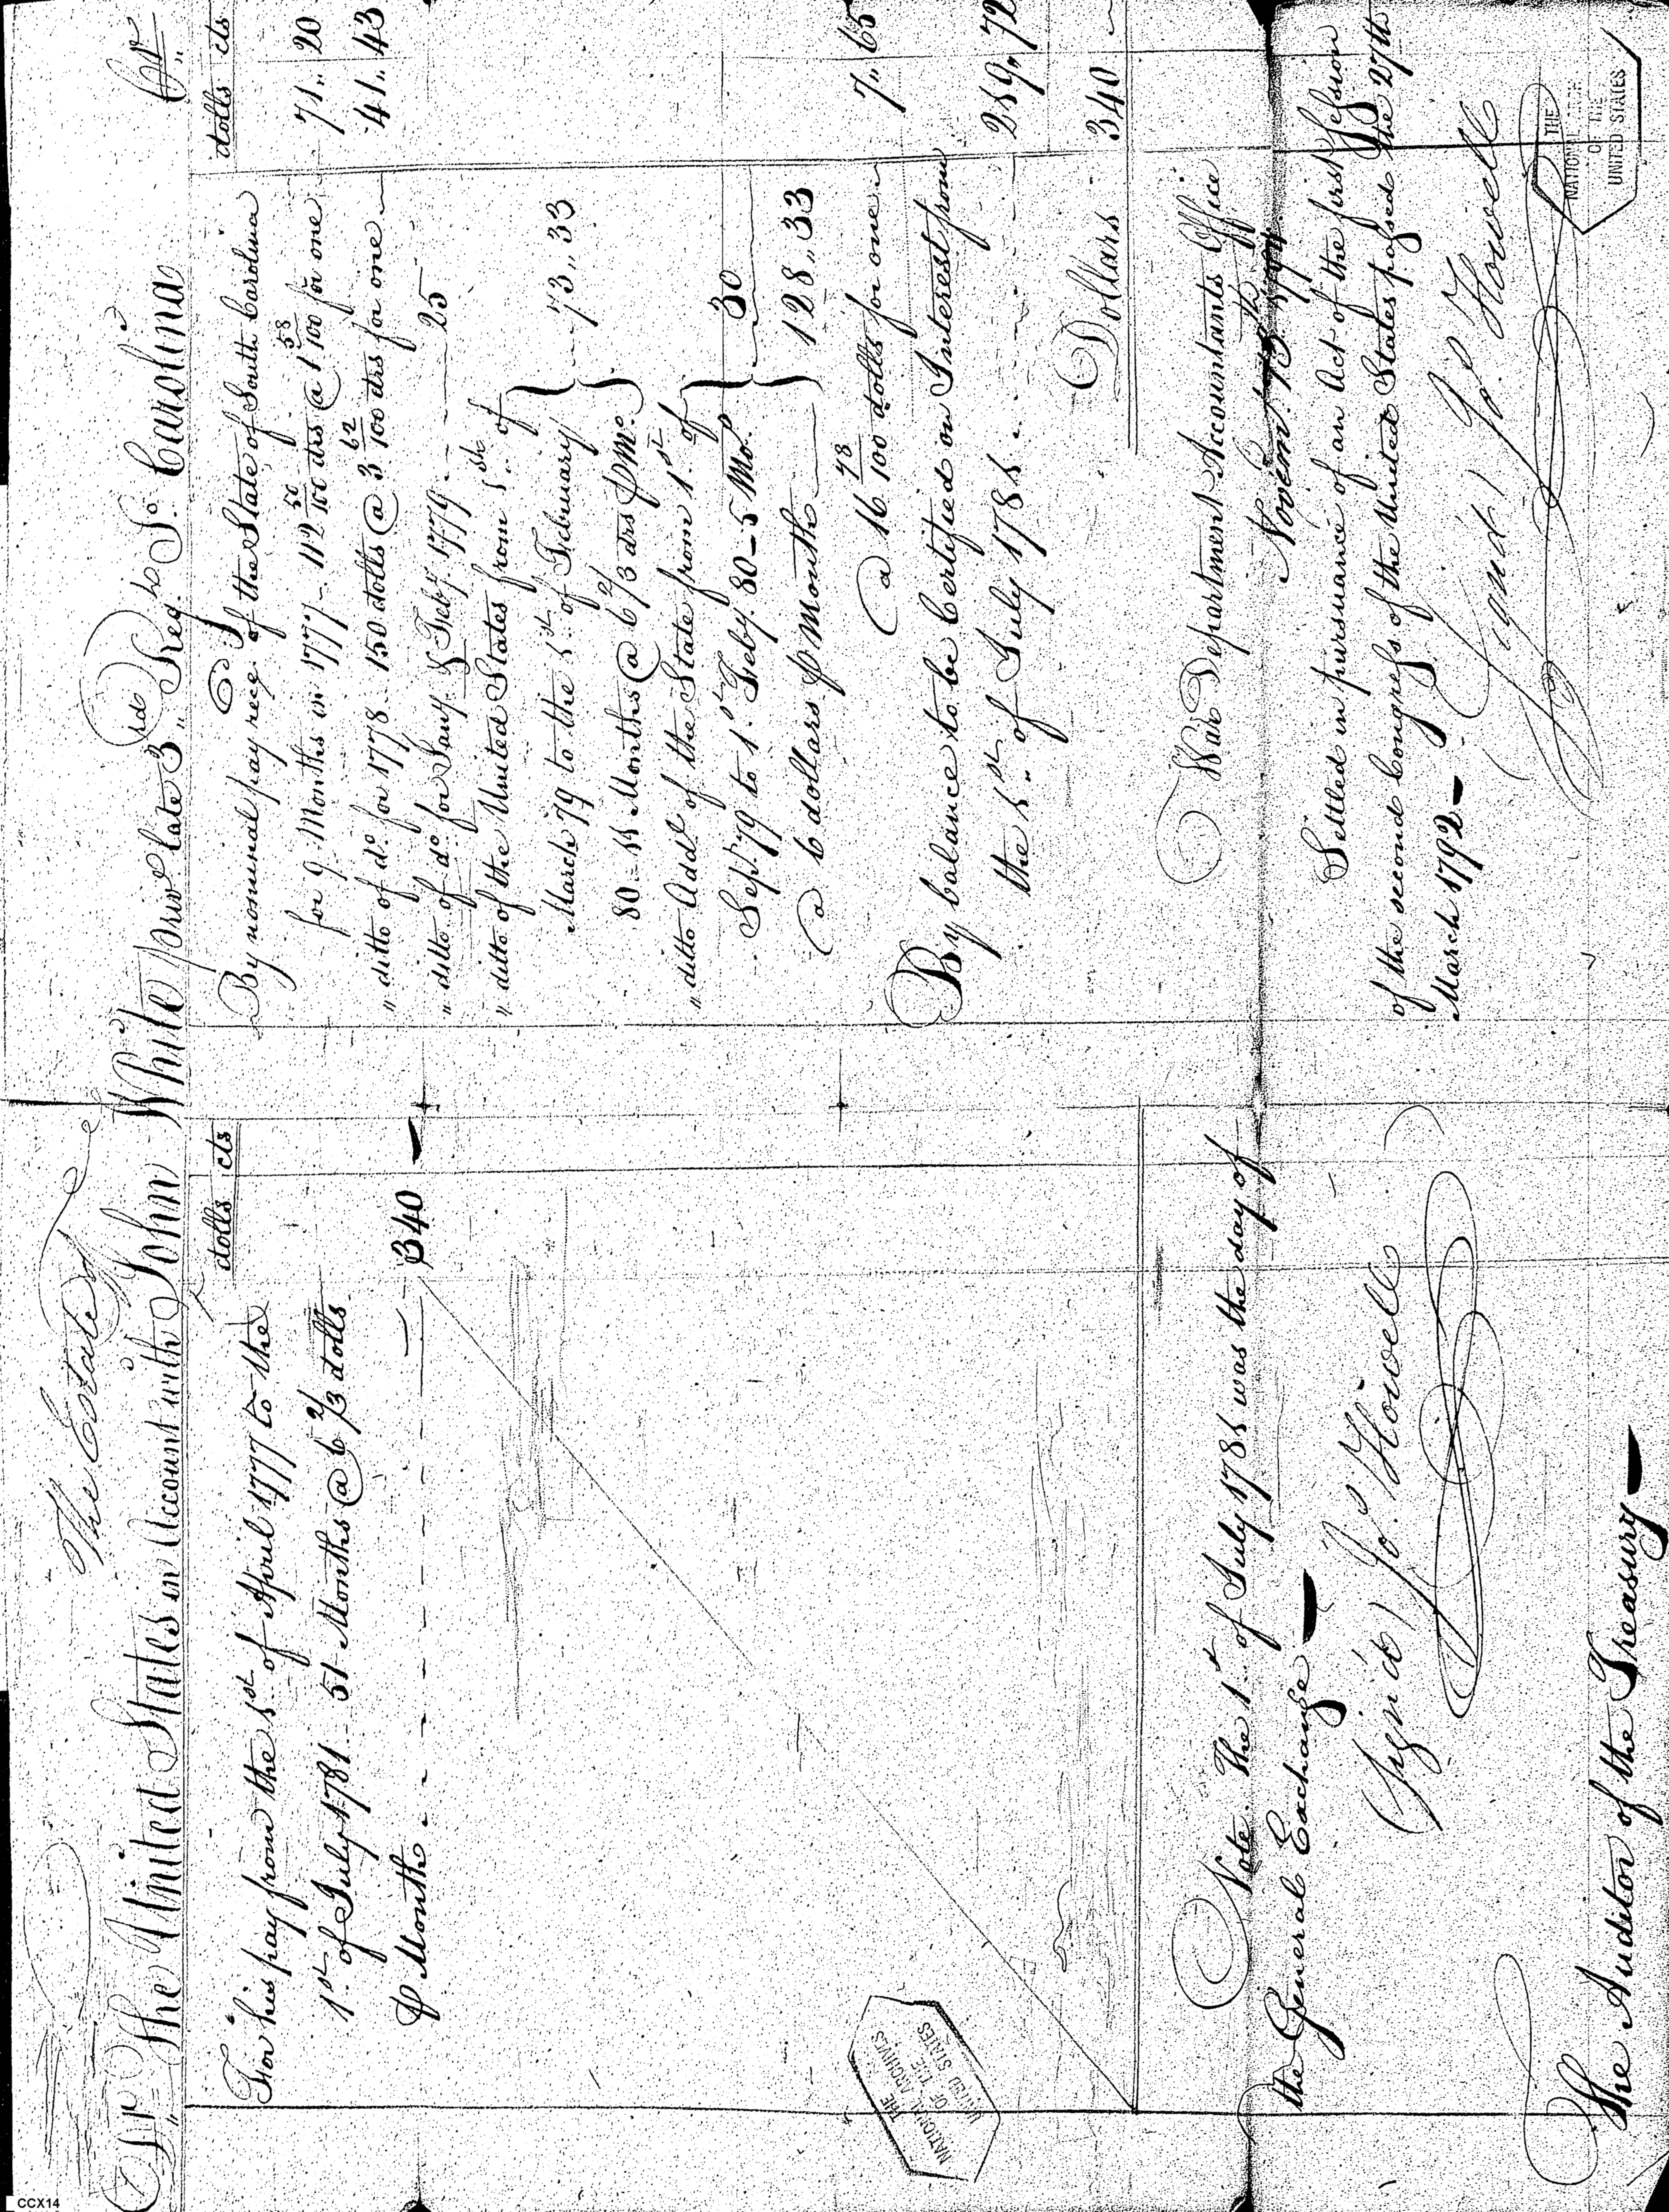 The Estate of
Dr. The United States in Account with John White priv.e late 3rd Reg.t So. Carolina Cr.
dolls cts
For his pay from the 1st of April 1777 to the
1st of July 1781 - 51 Months @ 6 2/3 dolls
⅌ Month 340 —
Note. The 1st of July 1781 was the day of
the General Exchange —
(Signed) Jo. Howell
The Auditor of the Treasury —
dolls cts
By nominal pay rec.d of the State of South Carolina
for 9 Months in 1777 - 112 50/100 drs @ 1 58/100 for one 71,, 20
,, ditto of do. for 1778 - 150 dolls @ 3 62/100 drs for one 41,, 43
,, ditto of do. for Jany. & Feby. 1779 25
,, ditto of the United States from 1st of
March 79 to the 1st of February
80 - 11 Months @ 6 2/3 drs ⅌ Mo. 73,, 33
,, ditto Add.l of the State from 1st of
Sept. 79 to 1st Feby. 80 - 5 Mo.
@ 6 dollars ⅌ Month 30
128,, 33
@ 16 78/100 dolls for one 7,, 65
By balance to be Certified on Interest from
the 1st of July 1781 219,, 72
Dollars 340
War Department Accountants Office
Novem.r 13th 1794
Settled in pursuance of an Act of the first Session
of the second Congress of the United States passed the 27th
March 1792 —
(Signed) Jo. Howell
THE
NATIONAL ARCHIVES
OF THE
UNITED STATES
THE
NATIONAL
OF THE
UNITED STATES
CCX14